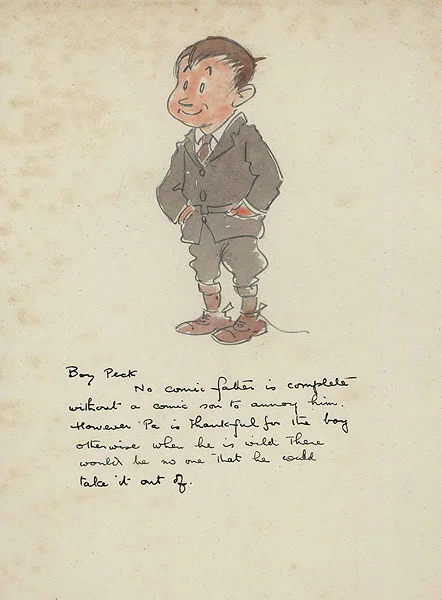 Boy Peck
No comic father is complete
without a comic son to annoy him.
However Pa is thankful for the boy
otherwise when he is wild there
would be no one that he could
take it out of.